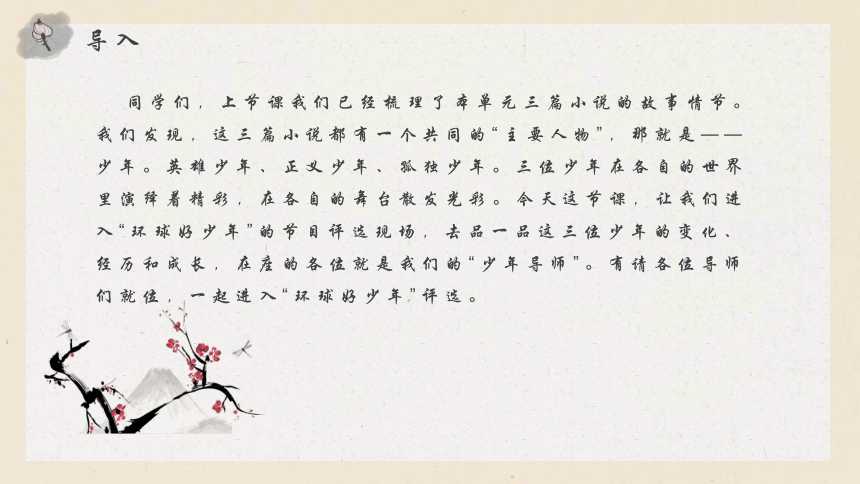 导入
同学们，上节课我们已经梳理了本单元三篇小说的故事情节。
我们发现，这三篇小说都有一个共同的“主要人物”，那就是——
少年。英雄少年、正义少年、孤独少年。三位少年在各自的世界
里演绎着精彩，在各自的舞台散发光彩。今天这节课，让我们进
入“环球好少年”的节目评选现场，去品一品这三位少年的变化、
经历和成长，在座的各位就是我们的“少年导师”。有请各位导师
们就位，一起进入“环球好少年”评选。